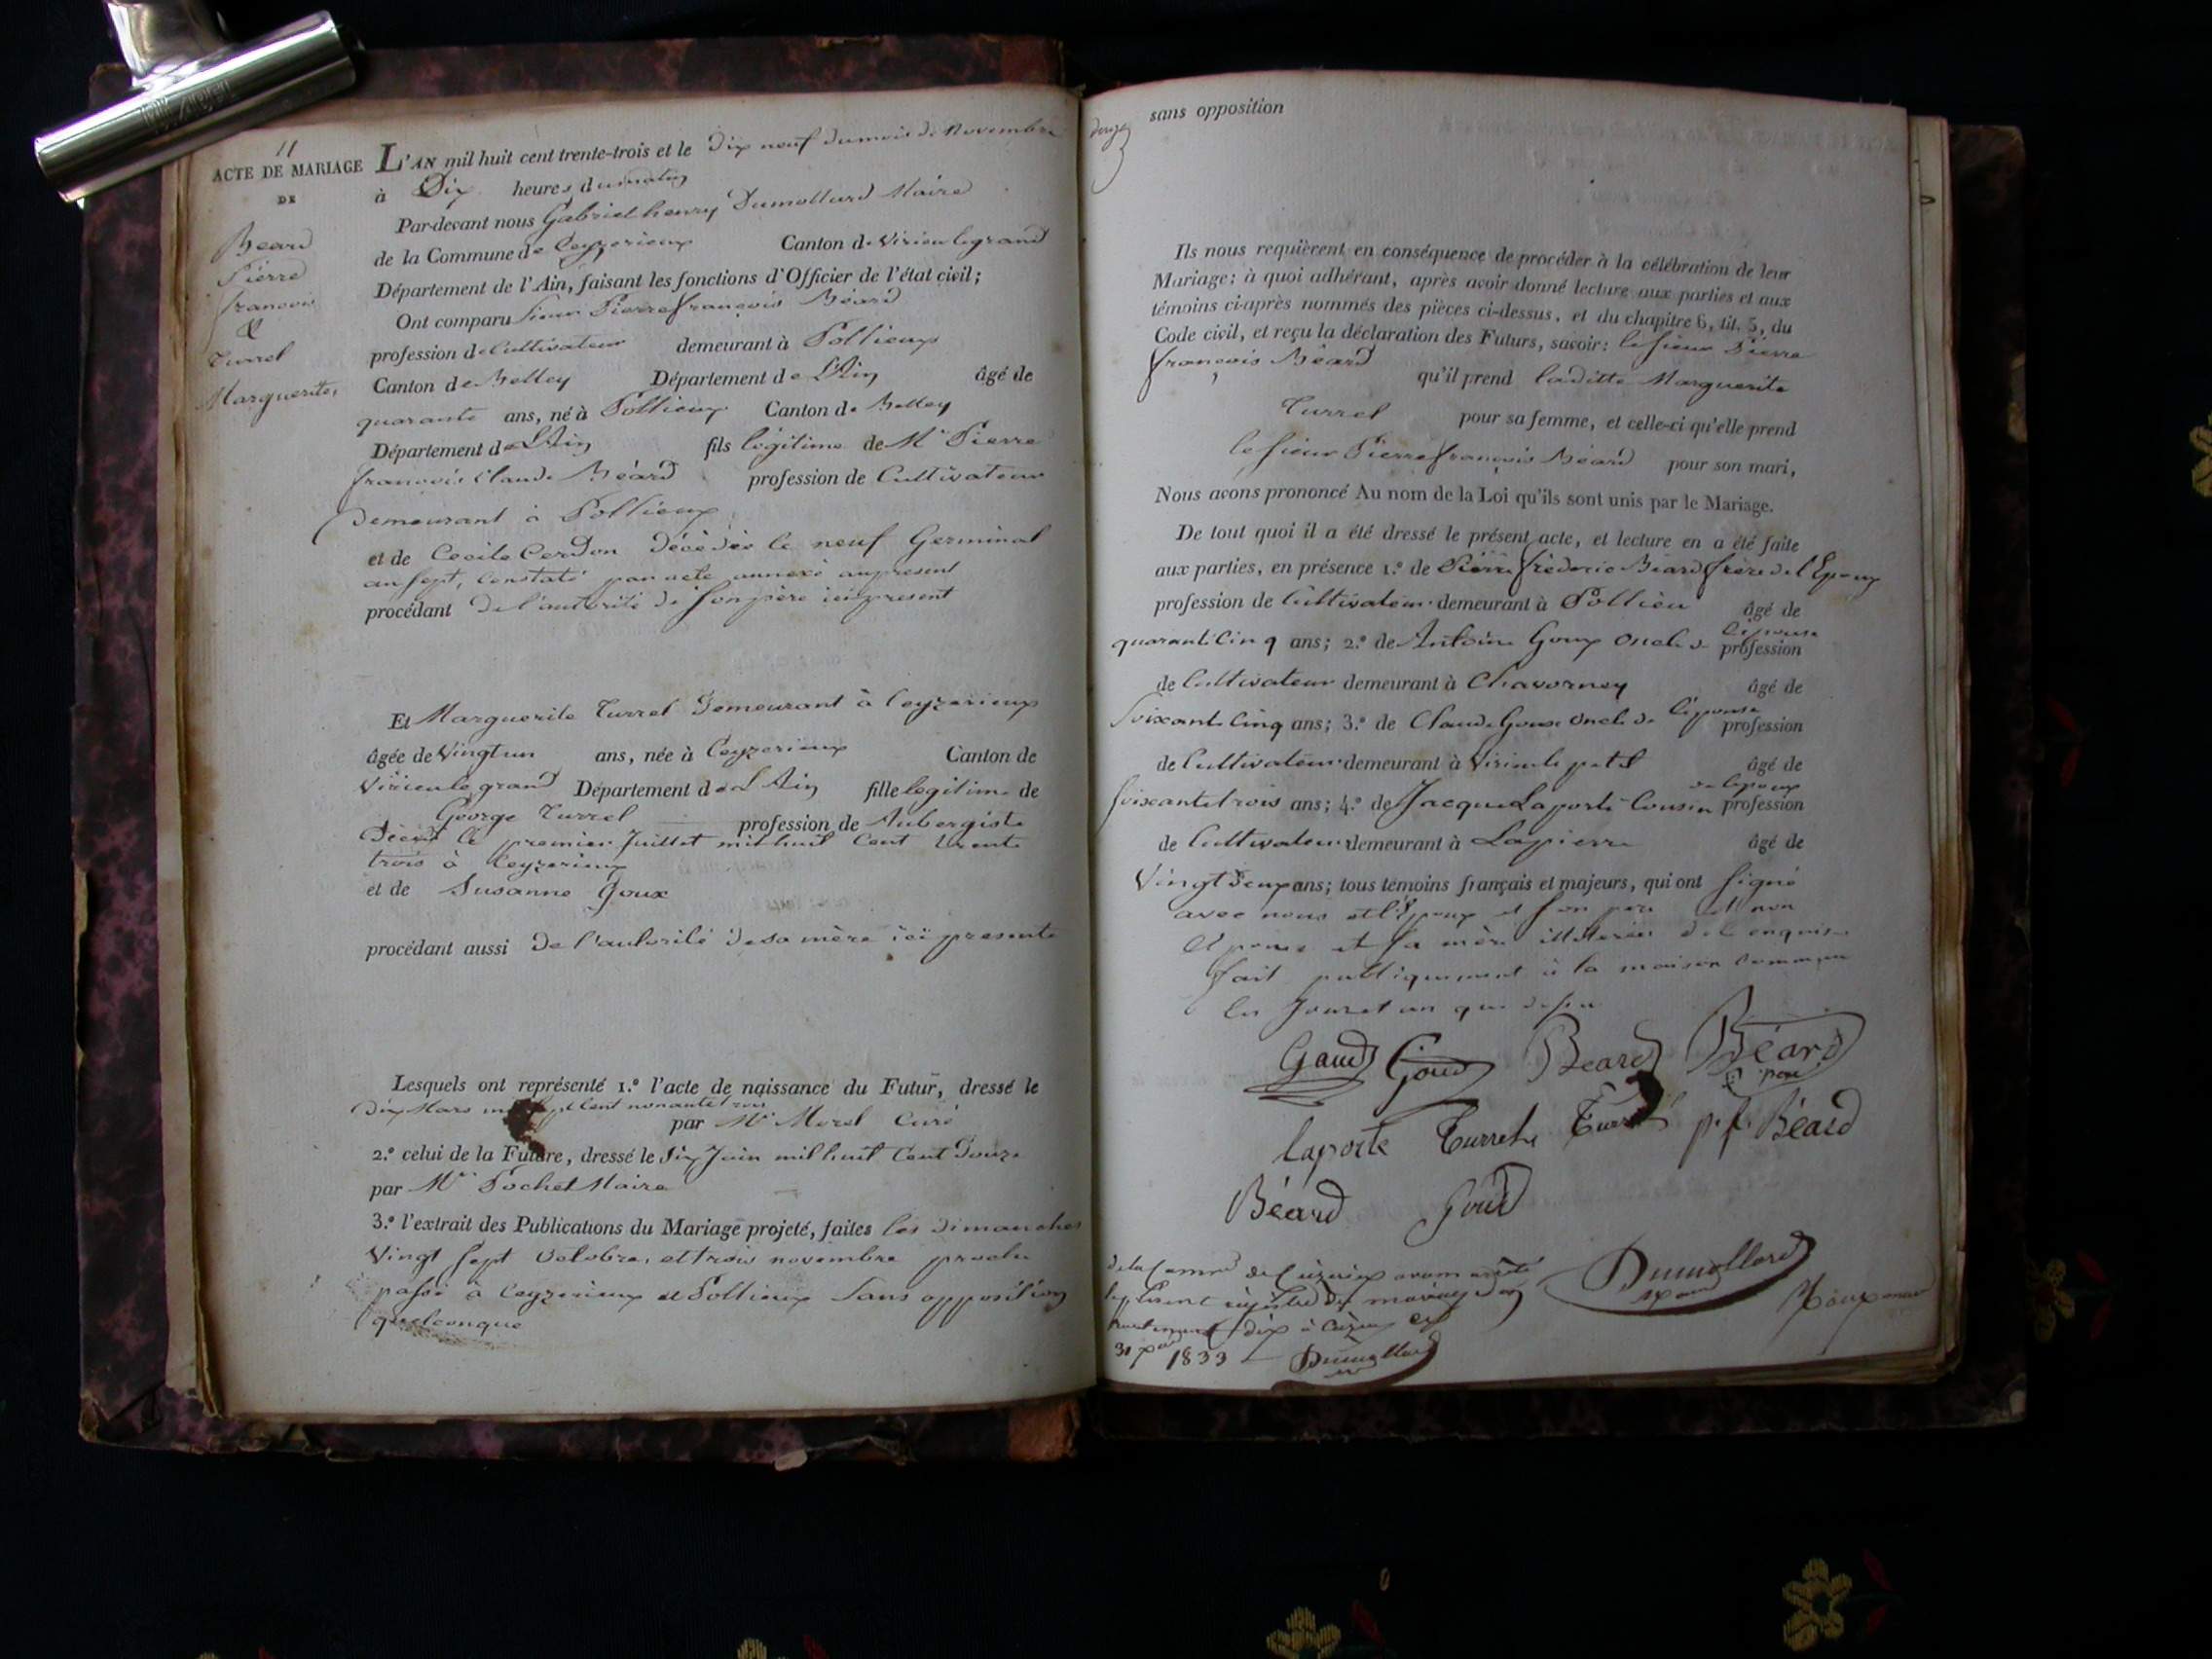 11
ACTE DE MARIAGE
DE
Beard
Pierre
françois
&
Turrel
Marguerite,
L'AN mil huit cent trente-trois et le Dix neuf du mois de Novembre
à Dix heures du matin
Par-devant nous Gabriel henry Dumollard Maire
de la Commune de Ceyzerieux Canton de Virieu le grand
Département de l'Ain, faisant les fonctions d'Officier de l'état civil;
Ont comparu Sieur Pierre françois Béard
profession de Cultivateur demeurant à Pollieux
Canton de Belley Département de L'Ain âgé de
quarante ans, né à Pollieux Canton de Belley
Département de L'Ain fils légitime de Mr Pierre
françois Claude Béard profession de Cultivateur
Demeurant à Pollieux
et de Cecile Cerdon Décédée le neuf Germinal
an sept, Constaté par acte annexé au present
procédant De l'autorité de son père ici present
Et Marguerite Turrel Demeurant à Ceyzerieux
âgée de Vingt un ans, née à Ceyzerieux Canton de
Virieu le grand Département de L'Ain fille legitime de
George Turrel profession de Aubergiste
Décédé le premier Juillet mil huit Cent trente
trois à Ceyzerieux
et de Susanne Goux
procédant aussi De l'autorité de sa mère ici presente
Lesquels ont représenté 1.º l'acte de naissance du Futur, dressé le
Dix Mars mil sept Cent nonante trois
par Mr Morel Curé
2.º celui de la Future, dressé le Six Juin mil huit Cent Douze
par Mr Pochet Maire
3.º l'extrait des Publications du Mariage projeté, faites les dimanches
Vingt sept Octobre, et trois novembre
passé à Ceyzerieux et Pollieux Sans opposition
quelconque
sans opposition
Ils nous requièrent en conséquence de procéder à la célébration de leur
Mariage; à quoi adhérant, après avoir donné lecture aux parties et aux
témoins ci-après nommés des pièces ci-dessus, et du chapitre 6, tit. 5, du
Code civil, et reçu la déclaration des Futurs, savoir: le sieur Pierre
françois Béard qu'il prend laditte Marguerite
Turrel pour sa femme, et celle-ci qu'elle prend
le sieur Pierre françois Béard pour son mari,
Nous avons prononcé Au nom de la Loi qu'ils sont unis par le Mariage.
De tout quoi il a été dressé le présent acte, et lecture en a été faite
aux parties, en présence 1.º de Pierre frederic Béard frère de l'Epoux
profession de Cultivateur demeurant à Pollieu âgé de
quarante Cinq ans; 2.º de Antoine Goux Oncle de l'épouse profession
de Cultivateur demeurant à Chavorney âgé de
Soixante Cinq ans; 3.º de Claude Goux Oncle de l'épouse profession
de Cultivateur demeurant à Virieu le petit âgé de
Soixante trois ans; 4.º de Jacque Laporte Cousin de l'epoux profession
de Cultivateur demeurant à Lapierre âgé de
Vingt Deux ans; tous témoins français et majeurs, qui ont signé
avec nous et l'Epoux et son pere et non
Epouse et sa mère de enquise
fait publiquement à la maison Commune
les Jour et an que dessus
Gaud Goud Beard Béard
pere
laporte Turrel Turrel p. f. Béard
Béard Goud
Dumollard
de la Comme de avons arrêté
le présent registre des mariages
dix à
31 Xbre 1833 Dumollard